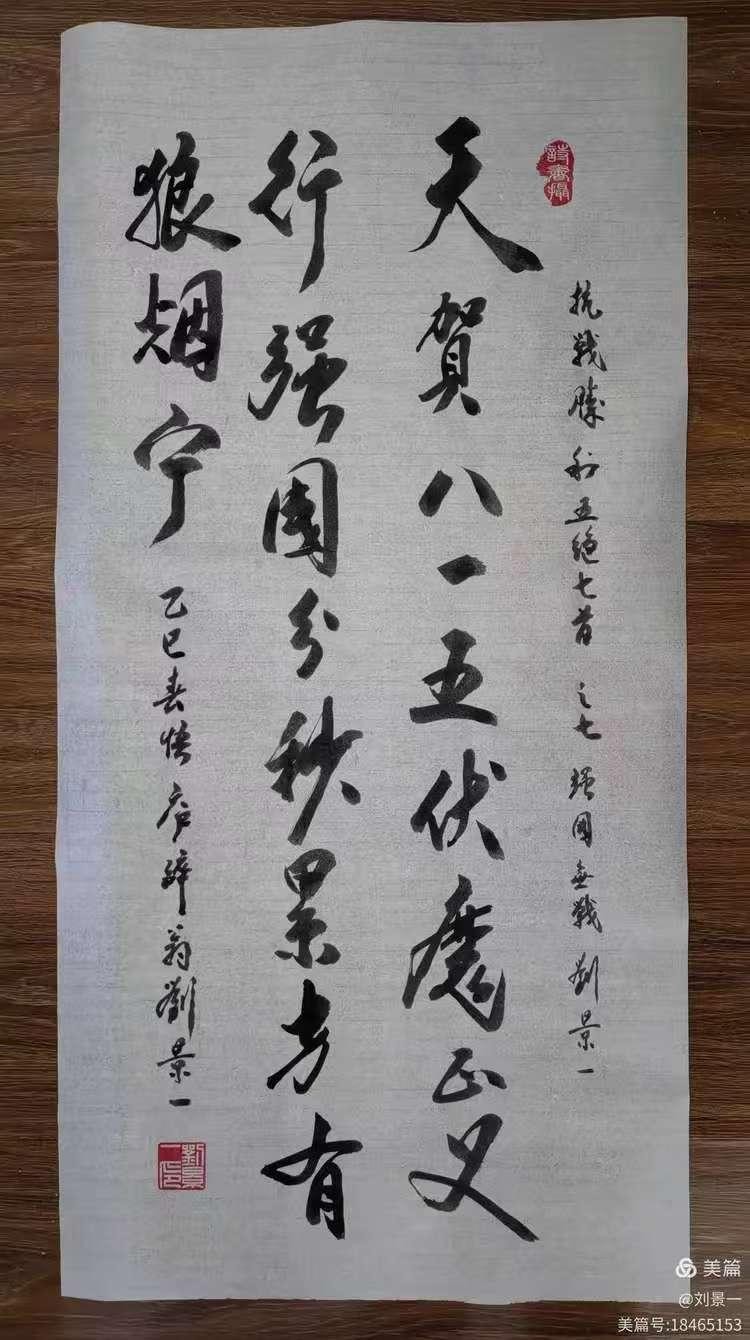 抗戰勝利五绝七首 之七 强國無戰 劉景一
天賀八一五伏魔正义
行强國分秒累方有
狼烟宁
乙巳春悟庐碎翁劉景一
劉景一印
美篇
@刘景一
美篇号:18465153